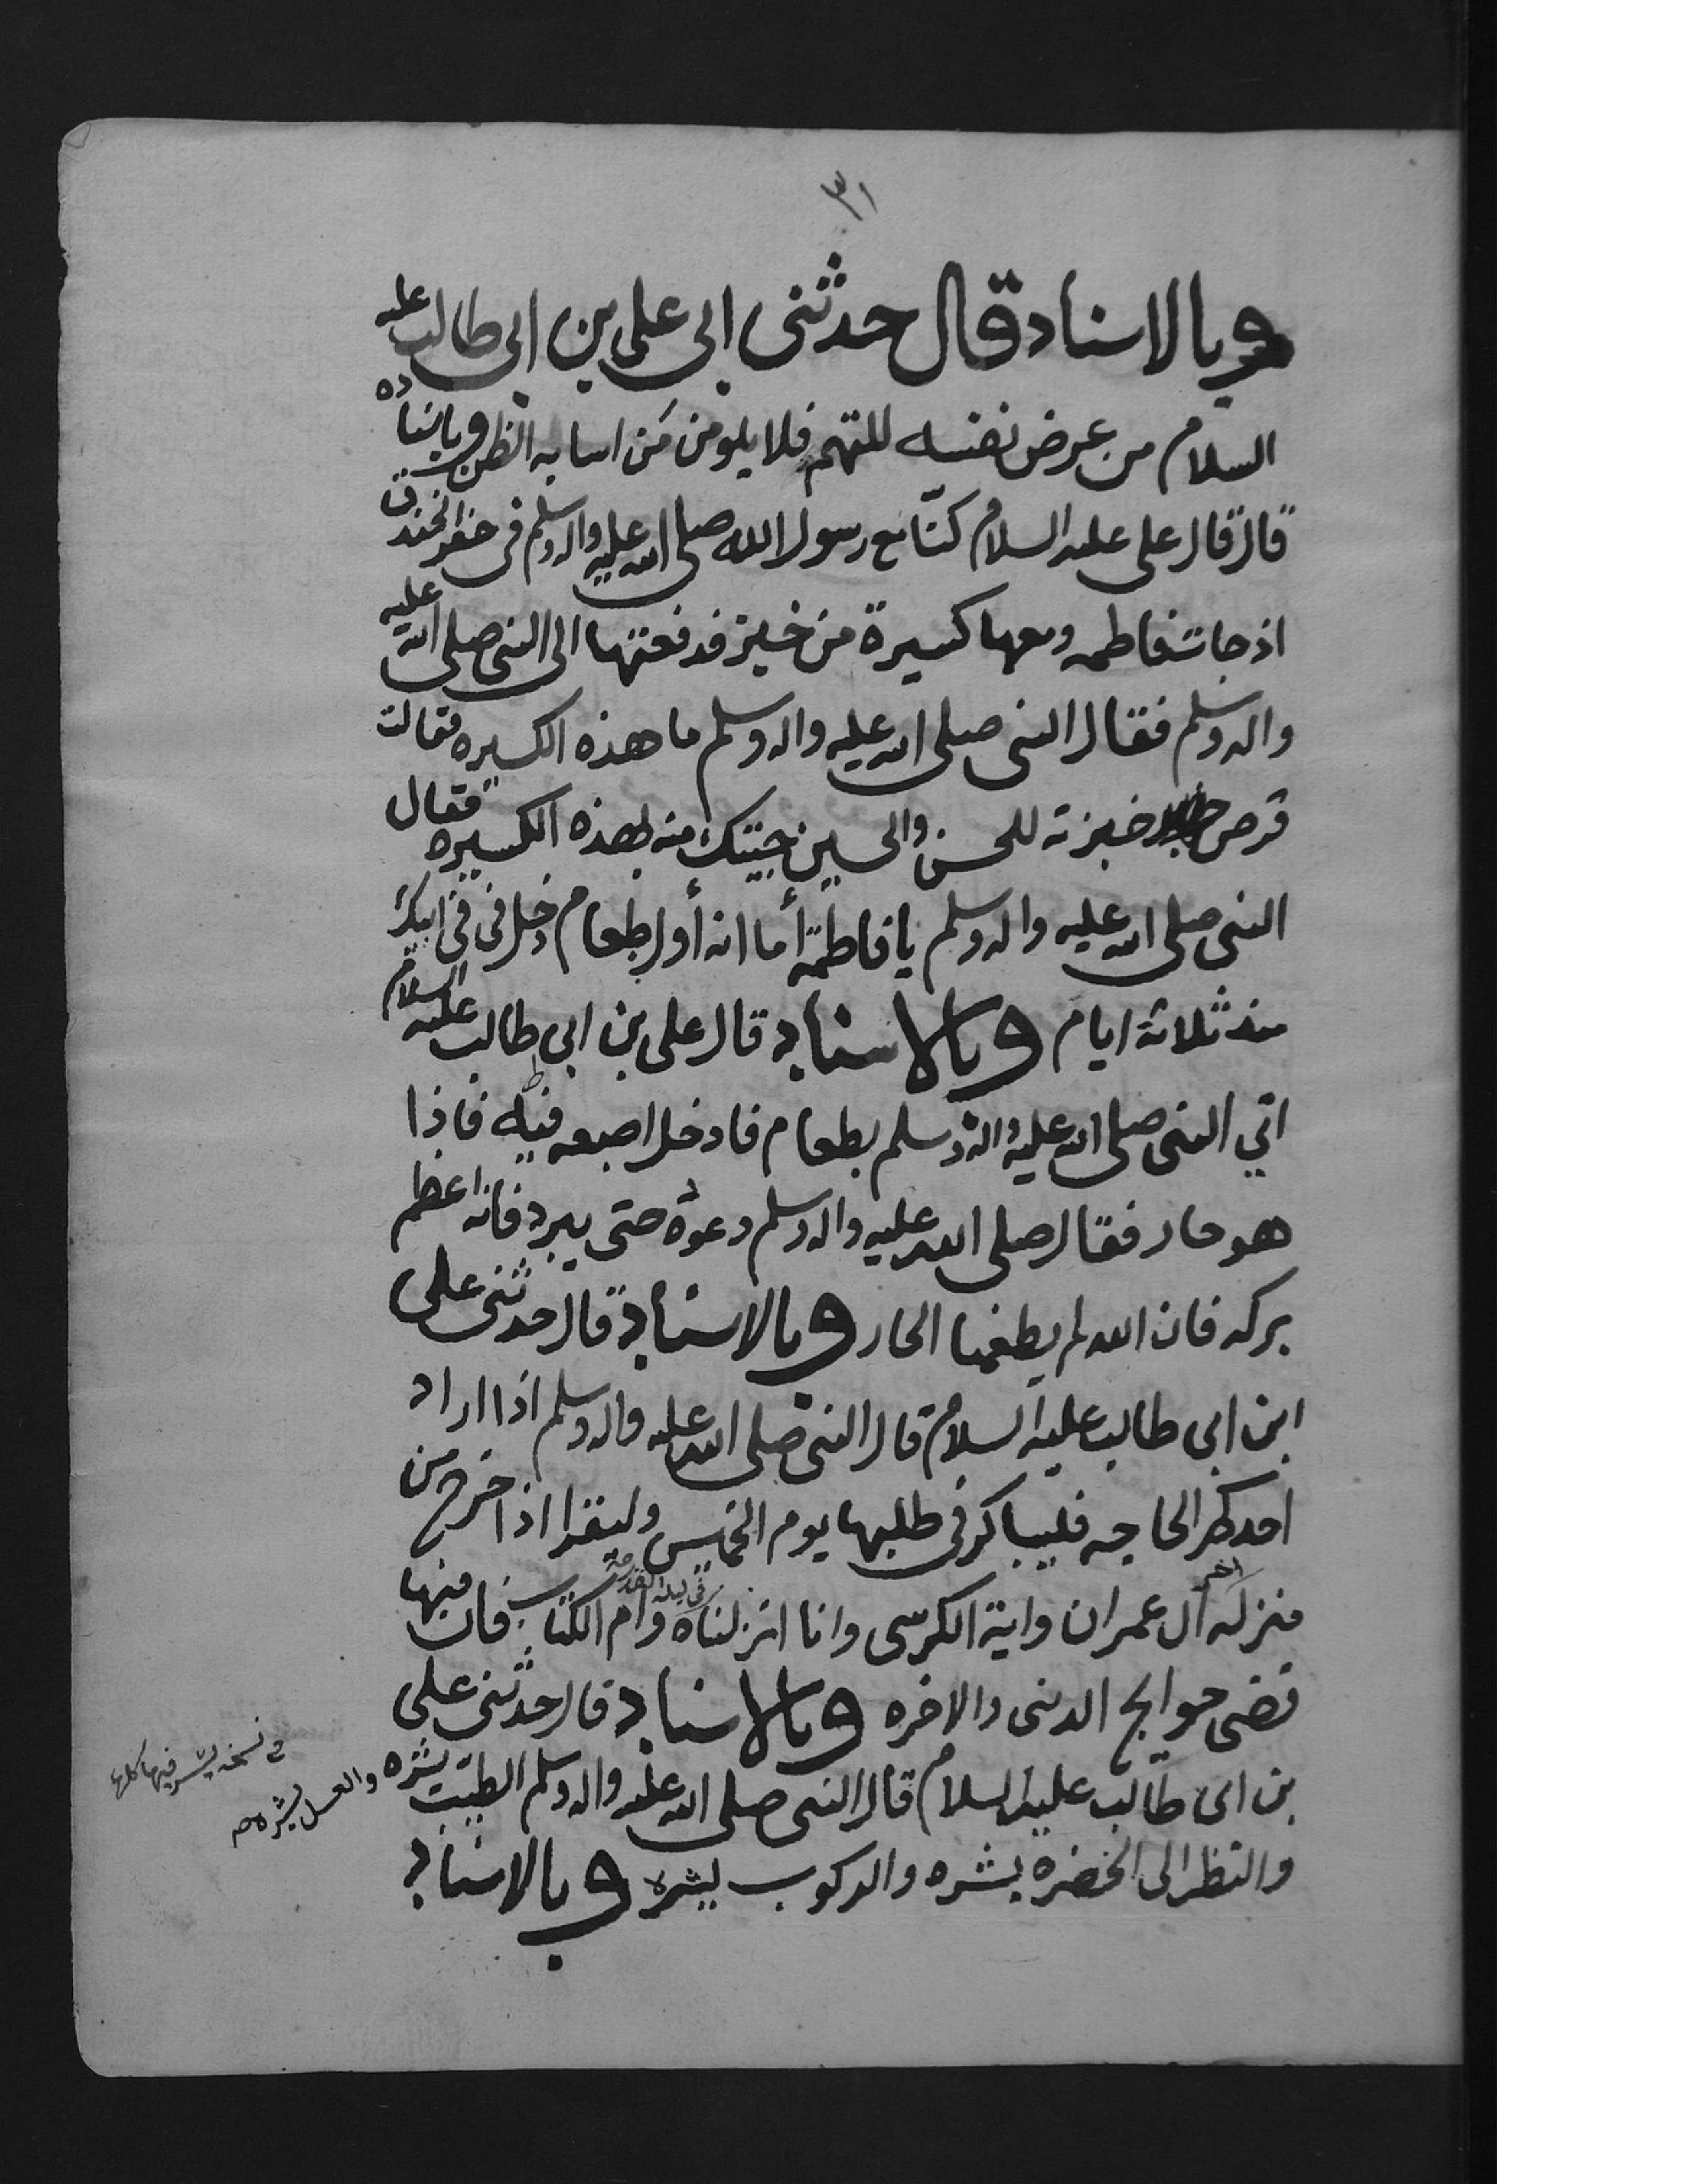 ٣١
وبالاسناد قال حدثنى ابى على بن ابى طالب عليه
السلام من عرض نفسه للتهم فلا يلومن من اسا به الظن وباسناده
قال قال على عليه السلام كنّا مع رسول الله صلى الله عليه واله وسلم فى حفر الخندق
اذ جات فاطمه ومعها كسيرة من خبز فدفعتها الى النبى صلى الله عليه
واله وسلم فقال النبى صلى الله عليه واله وسلم ما هذه الكسيره فقالت
قرص خبزته للحسن والحسين جيتك منه بهذه الكسيره فقال
النبى صلى الله عليه واله وسلم يا فاطمة أما انه أول طعام دخل فى فى ابيك
منذ ثلاثة ايام وبالاسناد قال على بن ابى طالب عليه السلام
اتي النبى صلى الله عليه واله وسلم بطعام فادخل اصبعه فيه فاذا
هو حار فقال صلى الله عليه واله وسلم دعوه حتى يبرد فانه اعظم
بركه فان الله لم يطعمنا الحار وبالاسناد قال حدثنى على
ابن ابى طالب عليه السلام قال النبى صلى الله عليه واله وسلم اذا اراد
احدكم الحاجه فليباكر فى طلبها يوم الخميس وليقرا اذا خرج من
منزله اخر آل عمران واية الكرسى وانا انزلناه فى ليلة القدر وام الكتاب فان فيها
قضى حوايج الدنى والاخره وبالاسناد قال حدثنى على
بن ابى طالب عليه السلام قال النبى صلى الله عليه واله وسلم الطيب يشره والعسل يشره صح
والنظر الى الخضرة يشره والركوب يشره وبالاسناد
فى نسخه يسر فيها كلها